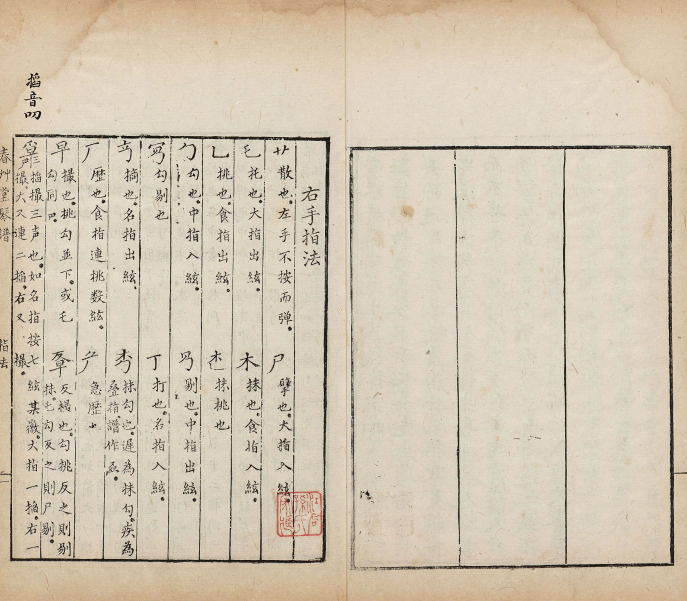 右手指法
艹 散也。左手不按而弹。
尸 擘也。大指入絃。
乇 托也。大指出絃。
木 抹也。食指入絃。
乚 挑也。食指出絃。
抹挑也
勹 勾也。中指入絃。
剔也。中指出絃。
勾剔也
丁 打也。名指入絃。
摘也。名指出絃。
抹勾也。遲為抹勾。疾為
叠指。譜作
厂 歷也。食指連挑数絃。
急歷也
早 撮也。挑勾並下。或乇
勾同
反撮也。勾挑反之則剔
抹。乇勾反之則尸剔。
掐撮三声也。如名指按七絃某徽。大指一掐。右一
撮。大又連二掐。右又撮。
春艸堂琴譜
指法
掐音叨